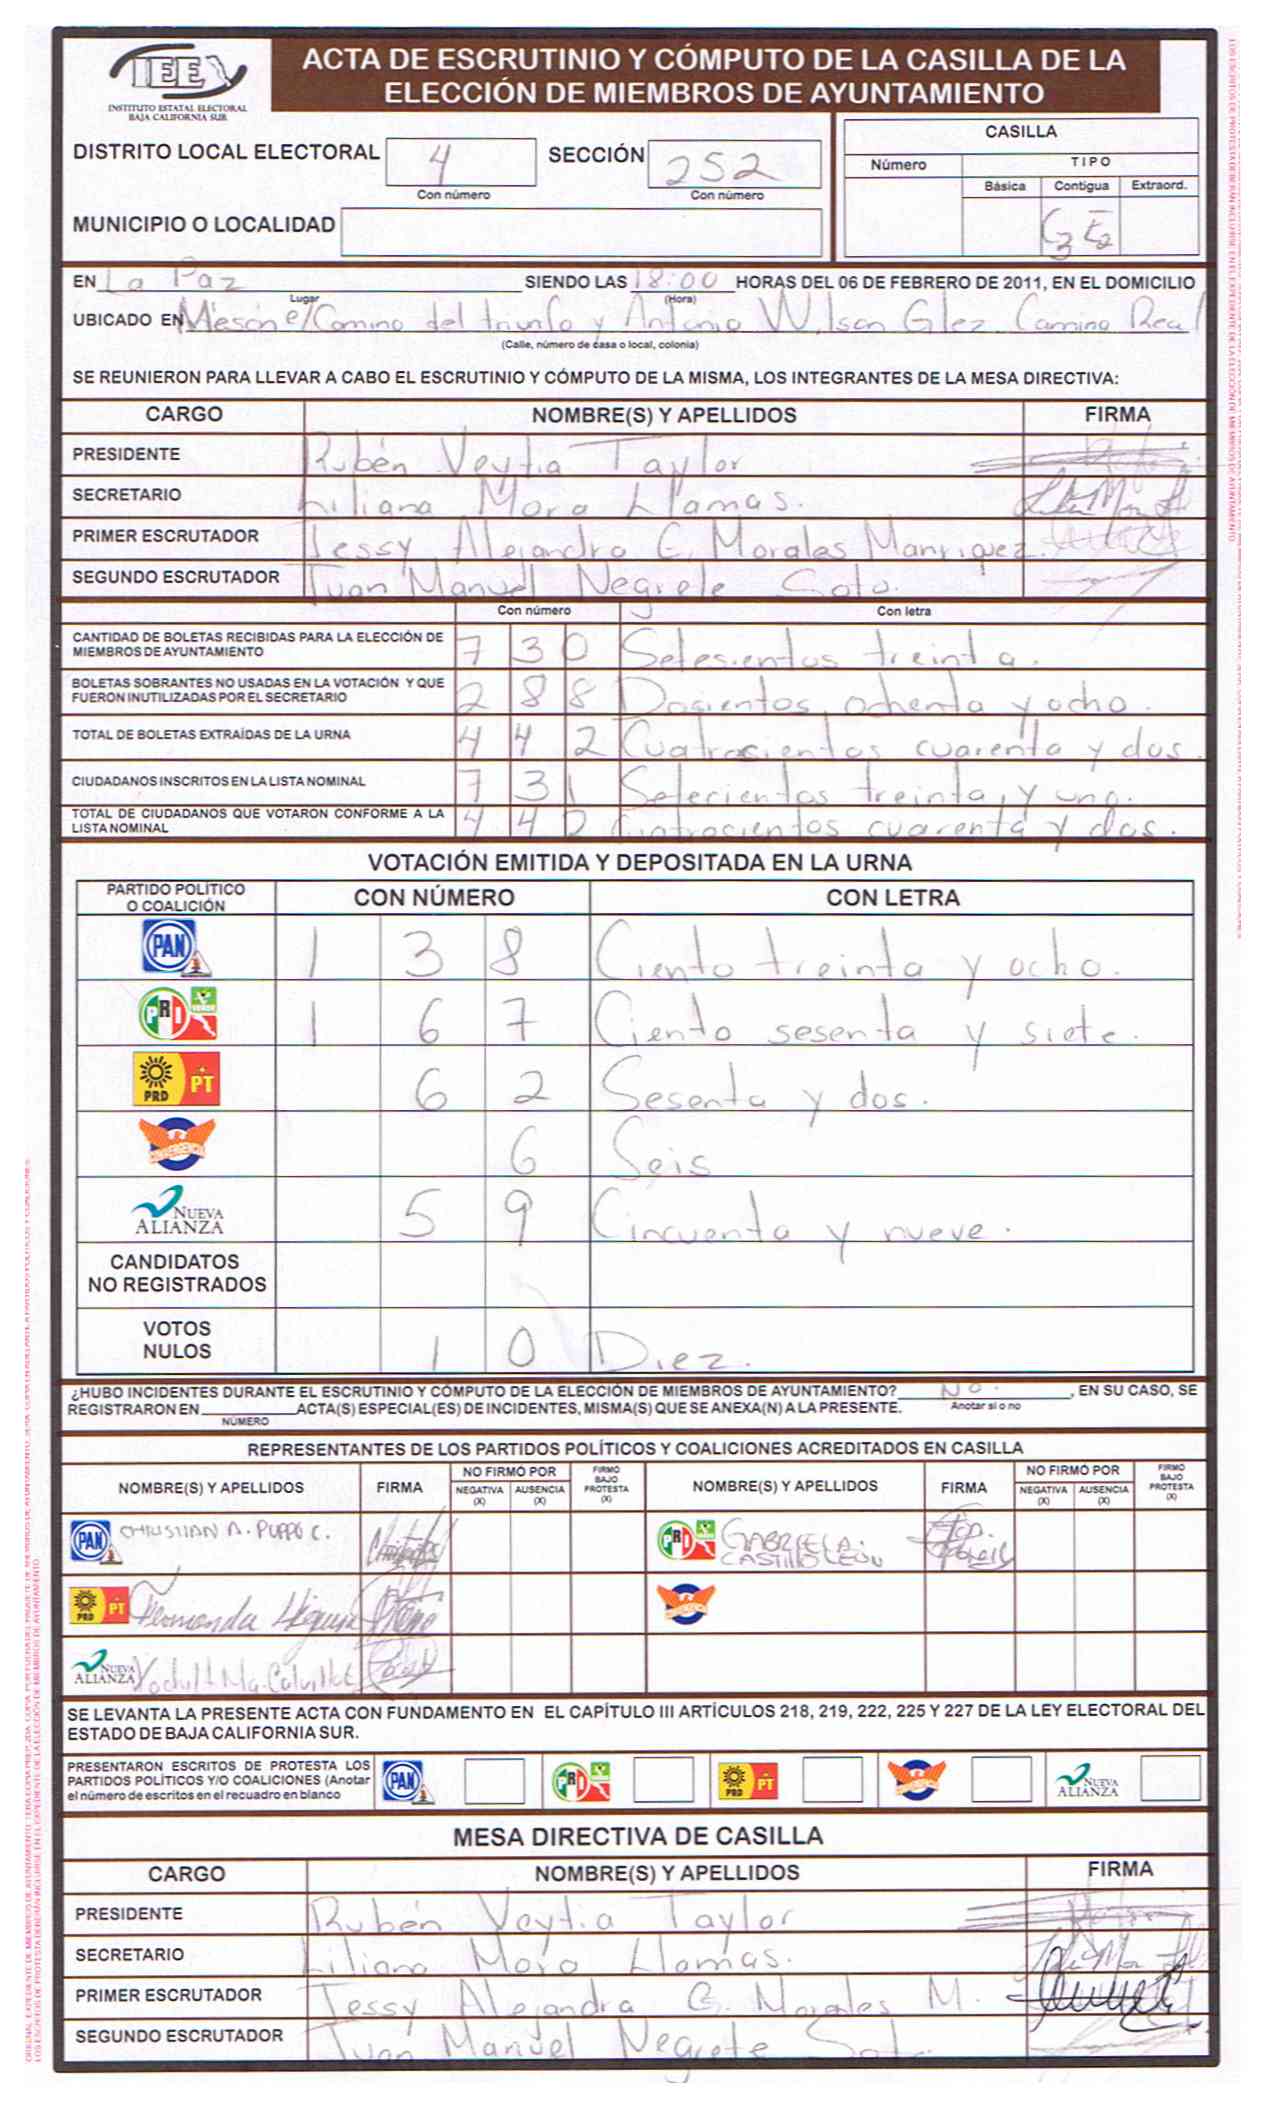 IEE
INSTITUTO ESTATAL ELECTORAL
BAJA CALIFORNIA SUR
ACTA DE ESCRUTINIO Y CÓMPUTO DE LA CASILLA DE LA
ELECCIÓN DE MIEMBROS DE AYUNTAMIENTO
DISTRITO LOCAL ELECTORAL 4 SECCIÓN 252
Con número Con número
MUNICIPIO O LOCALIDAD
CASILLA
Número TIPO
Básica Contigua Extraord.
C3 E2
EN La Paz SIENDO LAS 18:00 HORAS DEL 06 DE FEBRERO DE 2011, EN EL DOMICILIO
Lugar (Hora)
UBICADO EN Mesón e/Camino del triunfo y Antonio Wilson Glez. Camino Real
(Calle, número de casa o local, colonia)
SE REUNIERON PARA LLEVAR A CABO EL ESCRUTINIO Y CÓMPUTO DE LA MISMA, LOS INTEGRANTES DE LA MESA DIRECTIVA:
CARGO NOMBRE(S) Y APELLIDOS FIRMA
PRESIDENTE Rubén Veytia Taylor
SECRETARIO Liliana Mora Llamas.
PRIMER ESCRUTADOR Jessy Alejandra G. Morales Manriquez.
SEGUNDO ESCRUTADOR Juan Manuel Negrete Soto.
Con número Con letra
CANTIDAD DE BOLETAS RECIBIDAS PARA LA ELECCIÓN DE
MIEMBROS DE AYUNTAMIENTO 730 Setesientos treinta.
BOLETAS SOBRANTES NO USADAS EN LA VOTACIÓN Y QUE
FUERON INUTILIZADAS POR EL SECRETARIO 288 Dosientos ochenta y ocho.
TOTAL DE BOLETAS EXTRAÍDAS DE LA URNA 442 Cuatrocientos cuarenta y dos.
CIUDADANOS INSCRITOS EN LA LISTA NOMINAL 731 Setecientos treinta y uno.
TOTAL DE CIUDADANOS QUE VOTARON CONFORME A LA
LISTA NOMINAL 442 Cuatrocientos cuarenta y dos.
VOTACIÓN EMITIDA Y DEPOSITADA EN LA URNA
PARTIDO POLÍTICO
O COALICIÓN CON NÚMERO CON LETRA
PAN 1 3 8 Ciento treinta y ocho.
PRI VERDE 1 6 7 Ciento sesenta y siete.
PRD PT 6 2 Sesenta y dos.
CONVERGENCIA 6 Seis
NUEVA ALIANZA 5 9 Cincuenta y nueve.
CANDIDATOS
NO REGISTRADOS
VOTOS
NULOS 1 0 Diez.
¿HUBO INCIDENTES DURANTE EL ESCRUTINIO Y CÓMPUTO DE LA ELECCIÓN DE MIEMBROS DE AYUNTAMIENTO? No. , EN SU CASO, SE
REGISTRARON EN ACTA(S) ESPECIAL(ES) DE INCIDENTES, MISMA(S) QUE SE ANEXA(N) A LA PRESENTE. Anotar si o no
NÚMERO
REPRESENTANTES DE LOS PARTIDOS POLÍTICOS Y COALICIONES ACREDITADOS EN CASILLA
NOMBRE(S) Y APELLIDOS FIRMA NO FIRMÓ POR NEGATIVA (X) AUSENCIA (X) FIRMÓ BAJO PROTESTA (X) NOMBRE(S) Y APELLIDOS FIRMA NO FIRMÓ POR NEGATIVA (X) AUSENCIA (X) FIRMÓ BAJO PROTESTA (X)
PAN CHRISTIAN A. PUPPO C. PRI GABRIELA
CASTILLO LEÓN
PRD PT Fernanda Higuera CONVERGENCIA
NUEVA ALIANZA
SE LEVANTA LA PRESENTE ACTA CON FUNDAMENTO EN EL CAPÍTULO III ARTÍCULOS 218, 219, 222, 225 Y 227 DE LA LEY ELECTORAL DEL
ESTADO DE BAJA CALIFORNIA SUR.
PRESENTARON ESCRITOS DE PROTESTA LOS
PARTIDOS POLÍTICOS Y/O COALICIONES (Anotar
el número de escritos en el recuadro en blanco
PAN PRI PRD PT CONVERGENCIA NUEVA ALIANZA
MESA DIRECTIVA DE CASILLA
CARGO NOMBRE(S) Y APELLIDOS FIRMA
PRESIDENTE Rubén Veytia Taylor
SECRETARIO Liliana Mora Llamas.
PRIMER ESCRUTADOR Jessy Alejandra G. Morales M.
SEGUNDO ESCRUTADOR Juan Manuel Negrete Soto.